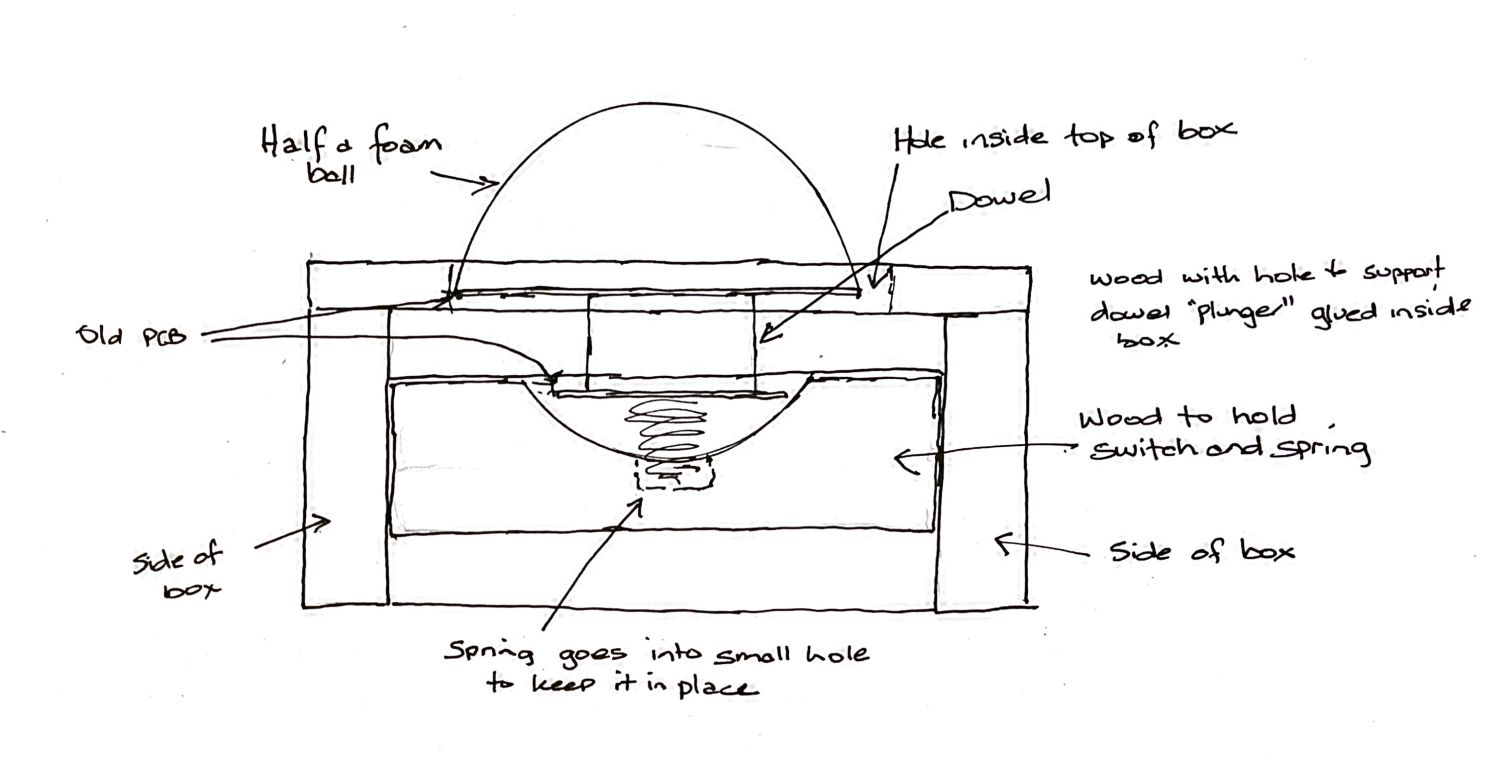 Half a foam
ball
Hole inside top of box
Dowel
Wood with hole to support
dowel "plunger" glued inside
box
Old PCB
Wood to hold
switch and spring
Side of
box
Side of box
Spring goes into small hole
to keep it in place